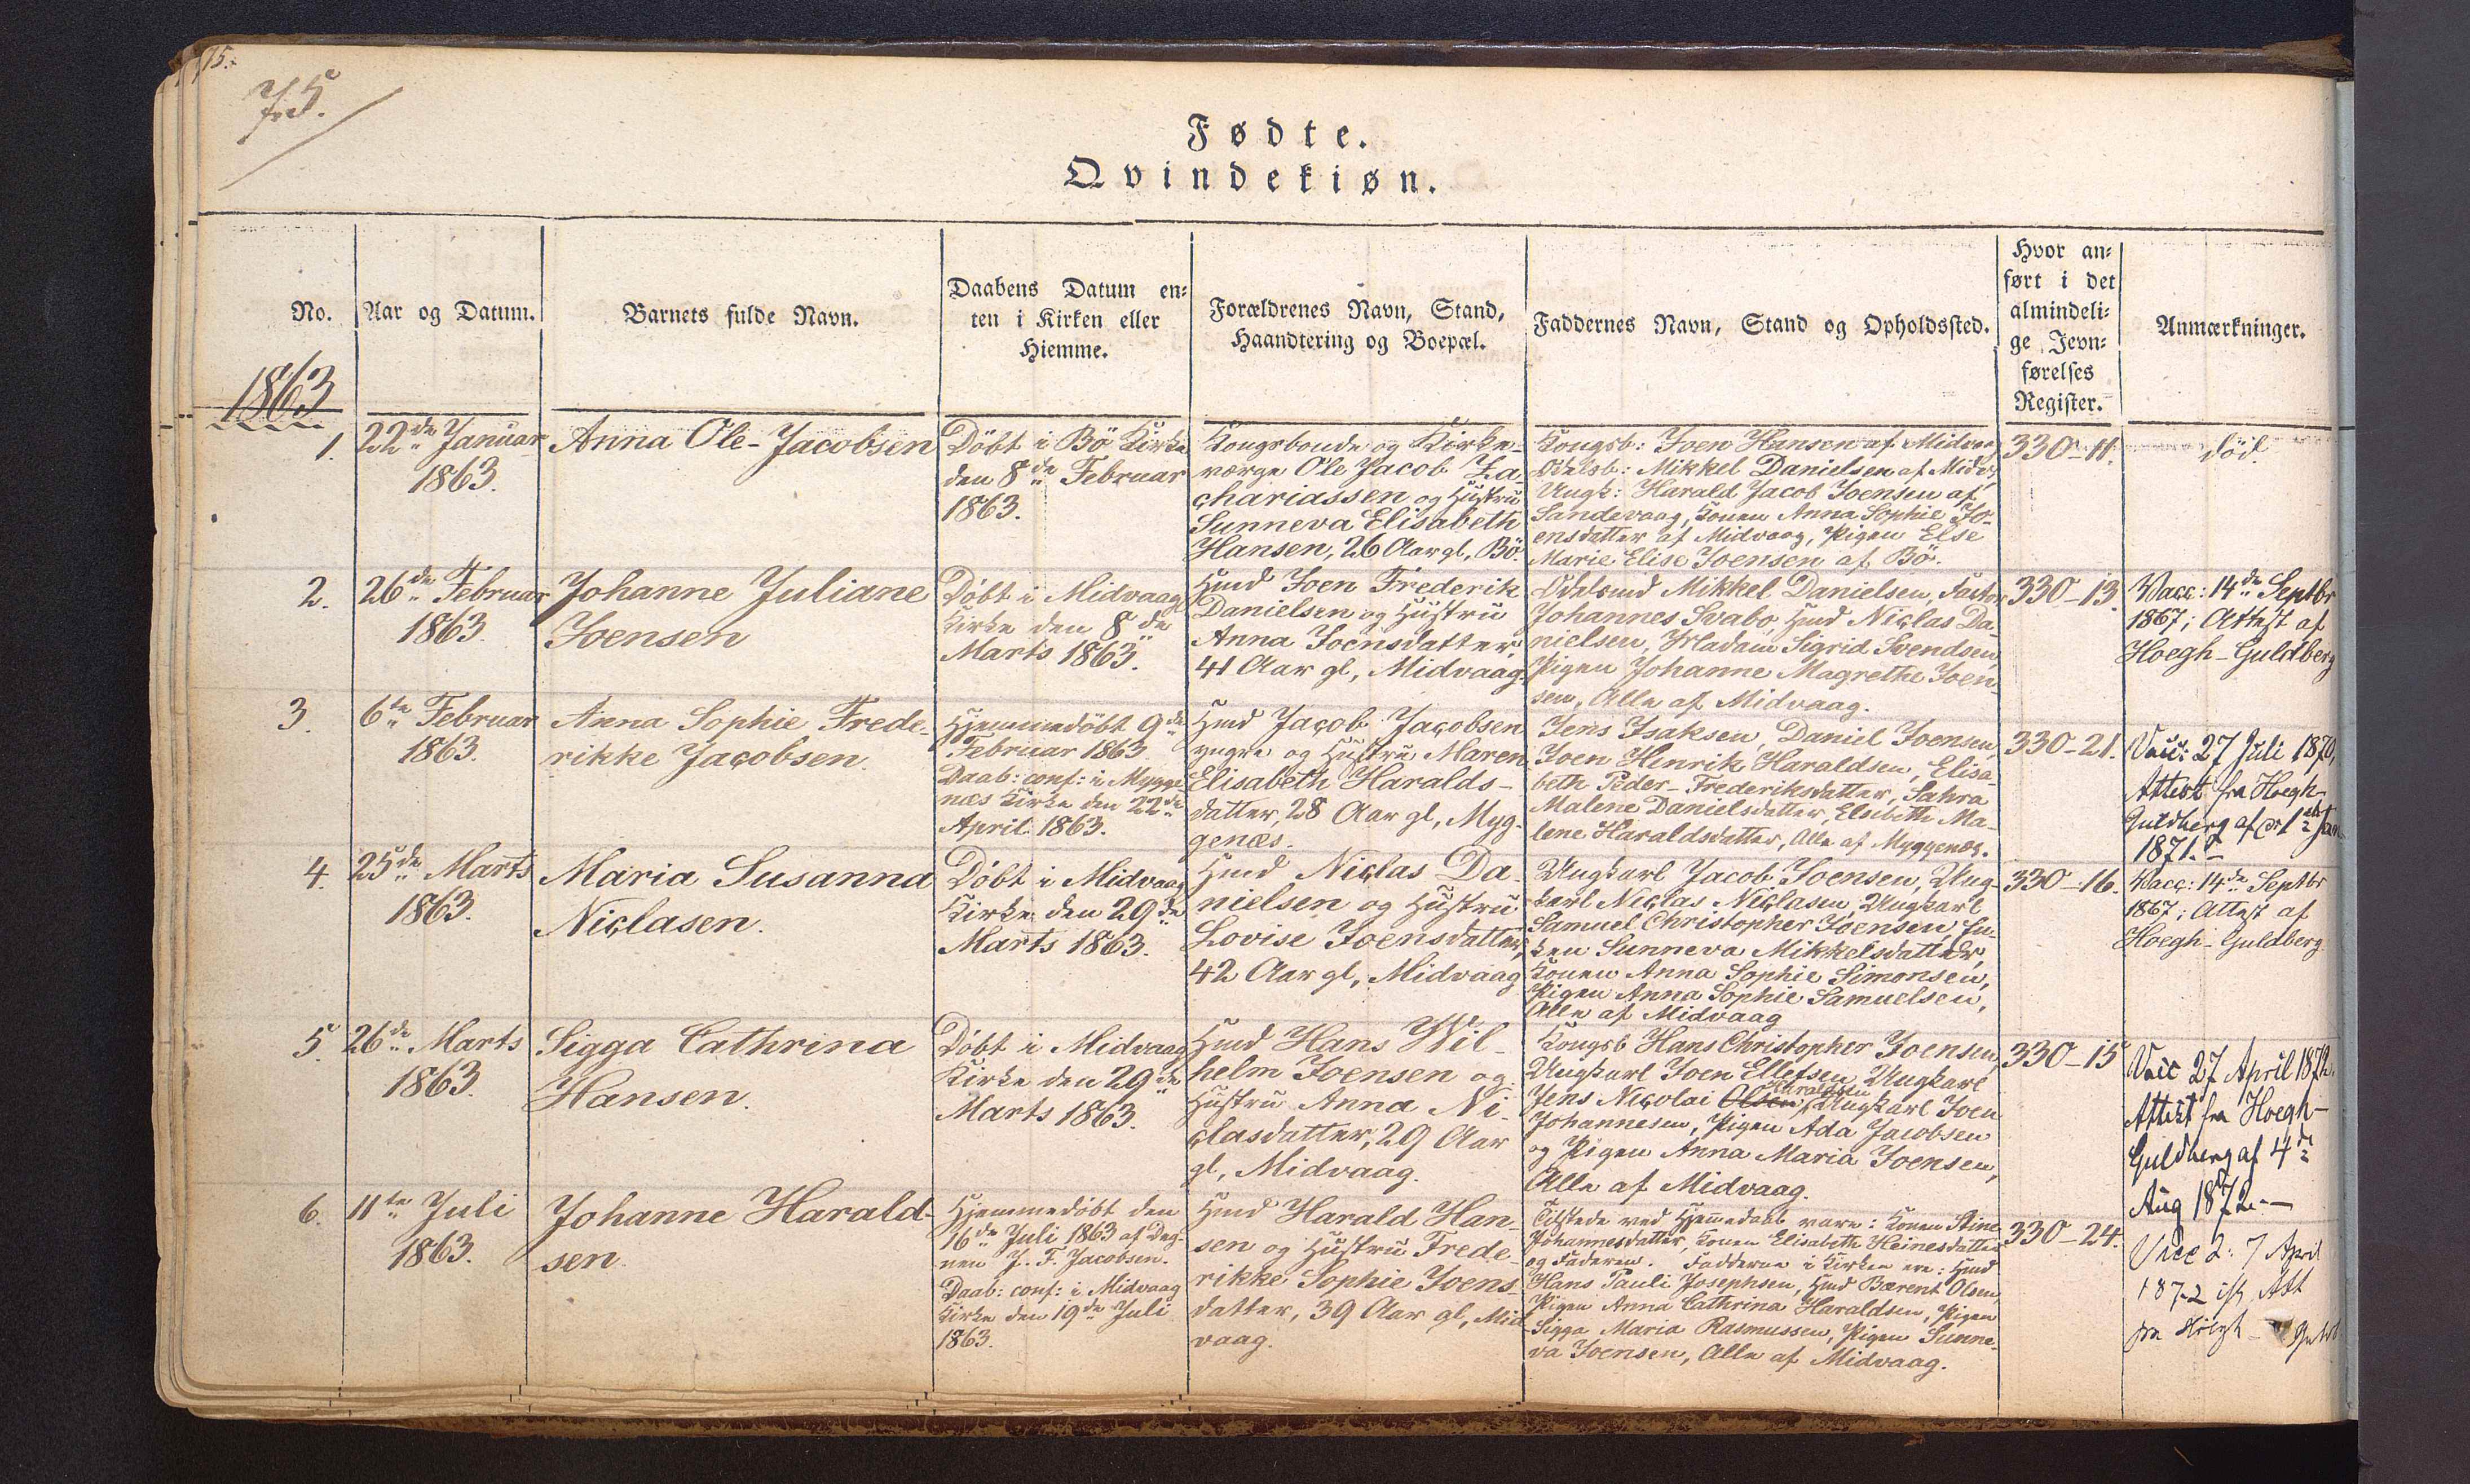 75.
75.
Fødte.
Qvindekiøn.
No.
Aar og Datum.
Barnets fulde Navn.
Daabens Datum en-
ten i Kirken eller
Hiemme.
Forældrenes Navn, Stand,
Haandtering og Boepæl.
Faddernes Navn, Stand og Opholdssted.
Hvor an-
ført i det
almindeli-
ge Jevn-
førelses
Register.
Anmærkninger.
1863
1.
22de Januar
1863.
Anna Ole-Jacobsen
Döbt i Bö Kirke
den 8de Februar
1863.
Kongsbonde og Kirke-
værge Ole Jacob Za-
chariassen og Hustru
Sunneva Elisabeth
Hansen, 26 Aar gl, Bö.
Kongsb: Joen Hansen af Midvaag
Odelsb: Mikkel Danielsen af Midv,
Ungk: Harald Jacob Joensen af
Sandevaag, Konen Anna Sophie Jo-
ensdatter af Midvaag, Pigen Else
Marie Elise Joensen af Bö.
330-11.
död.
2.
26de Februar
1863.
Johanne Juliane
Joensen
Döbt i Midvaag
Kirke den 8de
Marts 1863.
Hmd Joen Frederik
Danielsen og Hustru
Anna Joensdatter,
41 Aar gl, Midvaag.
Odelsmd Mikkel Danielsen, Factor
Johannes Svabo, Hmd Niclas Da-
nielsen, Madam Sigrid Svendsen,
Pigen Johanne Magrethe Joen-
sen, Alle af Midvaag.
330-13.
Vacc: 14de Septbr
1867; Attest af
Hoegh-Guldberg
3.
6te Februar
1863.
Anna Sophie Frede-
rikke Jacobsen.
Hjemmedöbt 9de
Februar 1863
Daab: conf: i Mygge-
næs Kirke den 22de
April 1863.
Hmd Jacob Jacobsen
yngre og Hustru Maren
Elisabeth Haralds-
datter, 28 Aar gl, Myg-
genæs.
Jens Isaksen, Daniel Joensen,
Joen Henrik Haraldsen, Elisa-
beth Peder-Frederiksdatter, Sahra
Malene Danielsdatter, Elsebeth Ma-
lene Haraldsdatter, Alle af Myggenæs.
330-21.
Vacc: 27 Juli 1870,
Attest fra Hoegh-
Guldberg af 1ste Jan
1871.
4.
25de Marts
1863.
Maria Susanna
Niclasen.
Döbt i Midvaag
Kirke den 29de
Marts 1863.
Hmd Niclas Da-
nielsen og Hustru
Lovise Joensdatter,
42 Aar gl, Midvaag
Ungkarl Jacob Joensen, Ung-
karl Niclas Niclasen, Ungkarl
Samuel Christopher Joensen, En-
ken Sunneva Mikkelsdatter,
Konen Anna Sophie Simonsen,
Pigen Anna Sophie Samuelsen,
Alle af Midvaag
330-16.
Vacc: 14de Septbr
1867; Attest af
Hoegh-Guldberg
5.
26de Marts
1863.
Sigga Cathrina
Hansen.
Döbt i Midvaag
Kirke den 29de
Marts 1863.
Hmd Hans Wil-
helm Joensen og
Hustru Anna Ni-
clasdatter, 29 Aar
gl, Midvaag.
Kongsb Hans Christopher Joensen,
Ungkarl Joen Ellefsen, Ungkarl
Jens Nicolai Olsen, Ungkarl Joen
Johannesen, Pigen Ada Jacobsen
og Pigen Anna Maria Joensen,
Alle af Midvaag.
330-15
Vacc 27 April 1872.
Attest fra Hoegh-
Guldberg af 4de
Aug 1872.
6.
11te Juli
1863.
Johanne Harald-
sen.
Hjemmedöbt den
16de Juli 1863 af Deg-
nen J. F. Jacobsen.
Daab: conf: i Midvaag
Kirke den 19de Juli
1863.
Hmd Harald Han-
sen og Hustru Frede-
rikke Sophie Joens-
datter, 39 Aar gl, Mid-
vaag.
Tilstede ved Hjemmedaab vare: Konen Stine
Johannesdatter, Konen Elisabeth Heinesdatter
og Faderen. Fadderne i Kirken ere: Hmd
Hans Pauli Josephsen, Hmd Bærent Olsen,
Pigen Anna Cathrina Haraldsen, Pigen
Sigga Maria Rasmussen, Pigen Sunne-
va Joensen, Alle af Midvaag.
330-24.
Vacc 27 April
1872 Att
fra Höegh-Guld